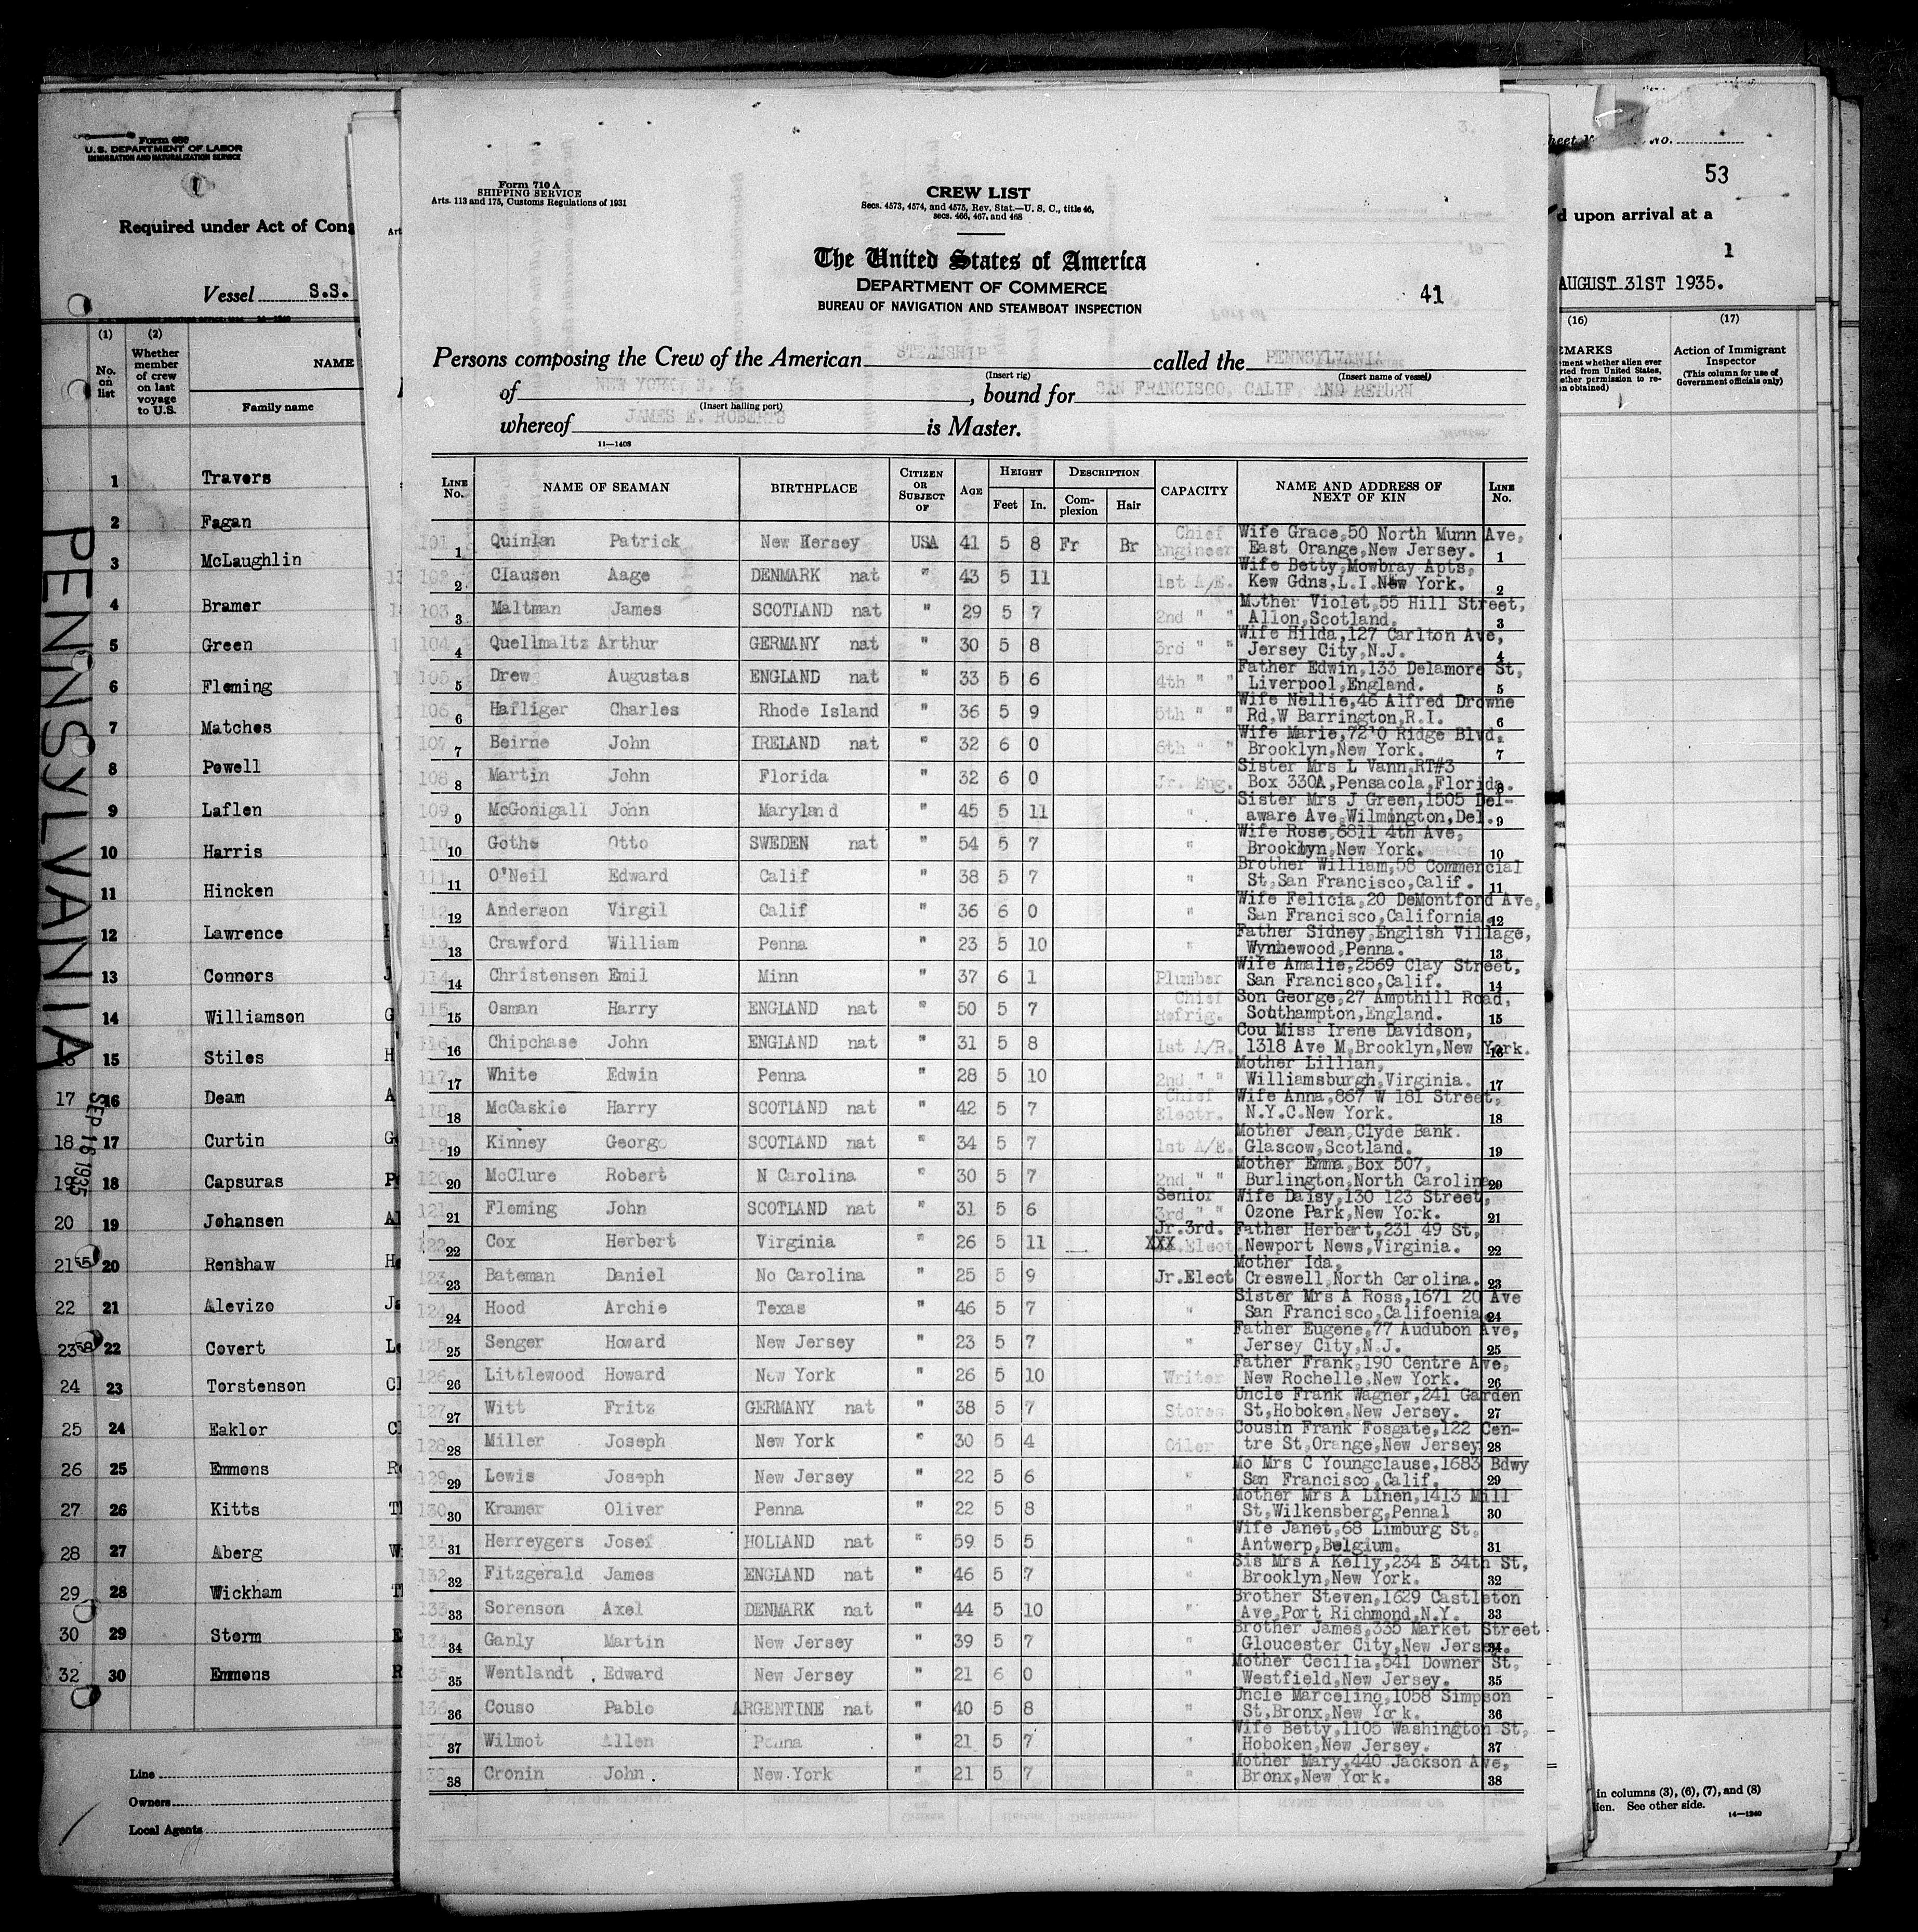 Form 680
U.S. DEPARTMENT OF LABOR
IMMIGRATION AND NATURALIZATION SERVICE
Required under Act of Cong
Vessel S.S.
(1) (2)
No. on list
Whether member of crew on last voyage to U.S.
NAME
Family name
1 Travers
2 Fagan
3 McLaughlin
4 Bramer
5 Green
6 Fleming
7 Matches
8 Powell
9 Laflen
10 Harris
11 Hincken
12 Lawrence
13 Connors
14 Williamson G
15 Stiles H
17 16 Dean A
18 17 Curtin G
19 18 Capsuras
20 19 Johansen
21 20 Renshaw
22 21 Alevizo
23 22 Covert
24 23 Torstenson
25 24 Eaklor
26 25 Emmons
27 26 Kitts
28 27 Aberg
29 28 Wickham
30 29 Storm
32 30 Emmons
Line
Owners
Local Agents
PENNSYLVANIA
SEP 16 1935
Form 710 A
SHIPPING SERVICE
Arts. 113 and 175, Customs Regulations of 1931
CREW LIST
Secs. 4573, 4574, and 4575, Rev. Stat.—U. S. C., title 46,
secs. 466, 467, and 468
The United States of America
DEPARTMENT OF COMMERCE
BUREAU OF NAVIGATION AND STEAMBOAT INSPECTION
41
Persons composing the Crew of the American STEAMSHIP called the PENNSYLVANIA
(Insert rig) (Insert name of vessel)
of NEW YORK, N. Y. , bound for SAN FRANCISCO, CALIF. AND RETURN
(Insert hailing port)
whereof JAMES E. ROBERTS is Master.
11—1408
LINE No. NAME OF SEAMAN BIRTHPLACE CITIZEN OR SUBJECT OF AGE HEIGHT Feet In. DESCRIPTION Complexion Hair CAPACITY NAME AND ADDRESS OF NEXT OF KIN LINE No.
101 1 Quinlan Patrick New Hersey USA 41 5 8 Fr Br Chief Engineer Wife Grace,50 North Munn Ave, East Orange,New Jersey. 1
102 2 Clausen Aage DENMARK nat " 43 5 11 1st A/E. Wife Betty,Mowbray Apts, Kew Gdns,L.I.New York. 2
103 3 Maltman James SCOTLAND nat " 29 5 7 2nd " " Mother Violet,55 Hill Street, Allon,Scotland. 3
104 4 Quellmaltz Arthur GERMANY nat " 30 5 8 3rd " " Wife Hilda,127 Carlton Ave, Jersey City,N.J. 4
105 5 Drew Augustas ENGLAND nat " 33 5 6 4th " " Father Edwin,133 Delamore St, Liverpool,England. 5
106 6 Hafliger Charles Rhode Island " 36 5 9 5th " " Wife Nellie,46 Alfred Drowne Rd,W Barrington,R.I. 6
107 7 Beirne John IRELAND nat " 32 6 0 6th " " Wife Marie,72'0 Ridge Blvd. Brooklyn,New York. 7
108 8 Martin John Florida " 32 6 0 Jr. Eng. Sister Mrs L Vann.RT#3 Box 330A,Pensacola,Florida. 8
109 9 McGonigall John Maryland " 45 5 11 " Sister Mrs J Green,1505 Del-aware Ave,Wilmington,Del. 9
110 10 Gothe Otto SWEDEN nat " 54 5 7 " Wife Rose,6811 4th Ave, Brooklyn,New York. 10
111 11 O'Neil Edward Calif " 38 5 7 " Brother William,58 Commercial St,San Francisco,Calif. 11
112 12 Anderson Virgil Calif " 36 6 0 " Wife Felicia,20 DeMontford Ave, San Francisco,California. 12
113 13 Crawford William Penna " 23 5 10 " Father Sidney,English Village, Wynnewood,Penna. 13
114 14 Christensen Emil Minn " 37 6 1 Plumber Wife Amalie,2569 Clay Street, San Francisco,Calif. 14
115 15 Osman Harry ENGLAND nat " 50 5 7 Chief Refrig. Son George,27 Ampthill Road, Southampton,England. 15
116 16 Chipchase John ENGLAND nat " 31 5 8 1st A/R. Cou Miss Irene Davidson, 1318 Ave M,Brooklyn,New York. 16
117 17 White Edwin Penna " 28 5 10 2nd " " Mother Lillian, Williamsburgh,Virginia. 17
118 18 McCaskie Harry SCOTLAND nat " 42 5 7 Chief Electr. Wife Anna,867 W 181 Street, N.Y.C.New York. 18
119 19 Kinney George SCOTLAND nat " 34 5 7 1st A/E. Mother Jean,Clyde Bank. Glascow,Scotland. 19
120 20 McClure Robert N Carolina " 30 5 7 2nd " " Mother Emma,Box 507, Burlington,North Carolina 20
121 21 Fleming John SCOTLAND nat " 31 5 6 Senior 3rd " " Wife Daisy,130 123 Street, Ozone Park,New York. 21
122 22 Cox Herbert Virginia " 26 5 11 Jr.3rd. XXX.Elect Father Herbert,231 49 St, Newport News,Virginia. 22
123 23 Bateman Daniel No Carolina " 25 5 9 Jr.Elect Mother Ida, Creswell,North Carolina. 23
124 24 Hood Archie Texas " 46 5 7 " Sister Mrs A Ross,1671 20 Ave San Francisco,Califoenia 24
125 25 Senger Howard New Jersey " 23 5 7 " Father Eugene,77 Audubon Ave, Jersey City,N.J. 25
126 26 Littlewood Howard New York " 26 5 10 Writer Father Frank,190 Centre Ave, New Rochelle,New York. 26
127 27 Witt Fritz GERMANY nat " 38 5 7 Stores Uncle Frank Wagner,241 Garden St,Hoboken,New Jersey. 27
128 28 Miller Joseph New York " 30 5 4 Oiler Cousin Frank Fosgate,122 Cen-tre St,Orange,New Jersey 28
129 29 Lewis Joseph New Jersey " 22 5 6 " Mo Mrs C Youngclause,1683 Bdwy San Francisco,Calif. 29
130 30 Kramer Oliver Penna " 22 5 8 " Mother Mrs A Linen,1413 Mill St,Wilkensberg,Pennal 30
131 31 Herreygers Josef HOLLAND nat " 59 5 5 " Wife Janet,68 Limburg St, Antwerp,Belgium. 31
132 32 Fitzgerald James ENGLAND nat " 46 5 7 " Sis Mrs A Kelly,234 E 34th St, Brooklyn,New York. 32
133 33 Sorenson Axel DENMARK nat " 44 5 10 " Brother Steven,1629 Castleton Ave,Port Richmond,N.Y. 33
134 34 Ganly Martin New Jersey " 39 5 7 " Brother James,335 Market Street Gloucester City,New Jersey. 34
135 35 Wentlandt Edward New Jersey " 21 6 0 " Mother Cecilia,541 Downer St, Westfield,New Jersey. 35
136 36 Couso Pablo ARGENTINE nat " 40 5 8 " Uncle Marcelino,1058 Simpson St,Bronx,New York. 36
137 37 Wilmot Allen Penna " 21 5 7 " Wife Betty,1105 Washington St, Hoboken,New Jersey. 37
138 38 Cronin John New York " 21 5 7 " Mother Mary,440 Jackson Ave, Bronx,New York. 38
heet No.
53
d upon arrival at a
1
AUGUST 31ST 1935.
(16) (17)
EMARKS
ment whether alien ever
rted from United States,
ether permission to re-
n obtained)
Action of Immigrant Inspector
(This column for use of Government officials only)
in columns (3), (6), (7), and (8)
ien. See other side.
14—1240